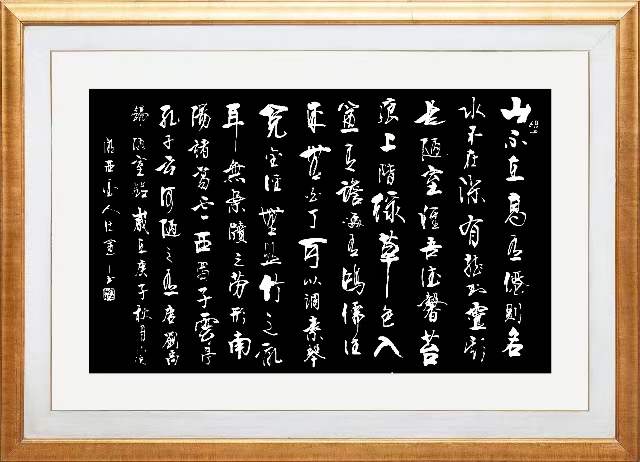 山不在高有僊則名
水不在深有龍則靈斯
是陋室惟吾德馨苔
痕上階綠草色入
簾青談笑有鴻儒往
來無白丁可以調素琴
閱金經無絲竹之亂
耳無案牘之勞形南
陽諸葛廬西蜀子雲亭
孔子云何陋之有唐劉禹
錫陋室銘歲在庚子秋月